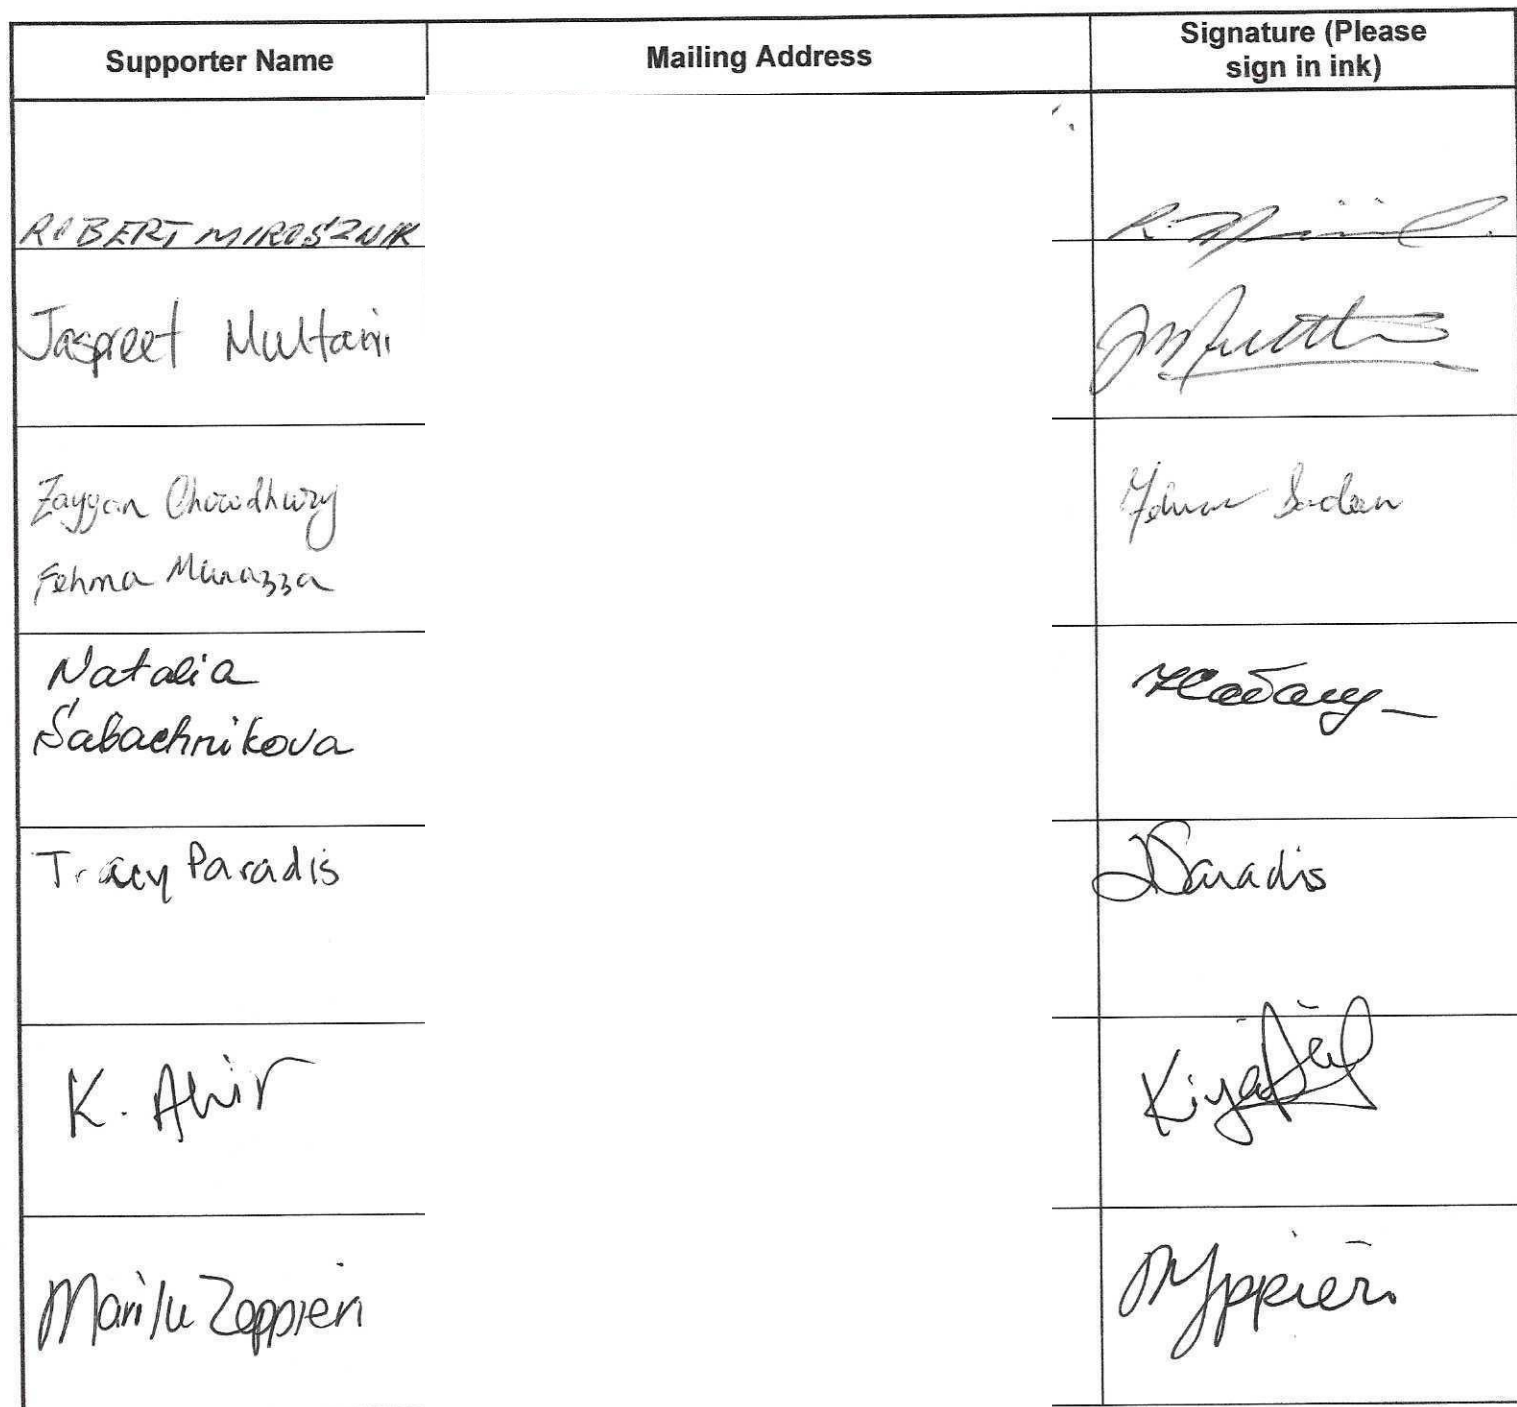 Supporter Name
Mailing Address
Signature (Please
sign in ink)
ROBERT MIROSZNIK
Jaspreet Multani
Zayyan Chowdhury
Fehma Munazza
Natalia
Sabachnikova
Tracy Paradis
TParadis
K. Ahir
Marilu Zeppieri